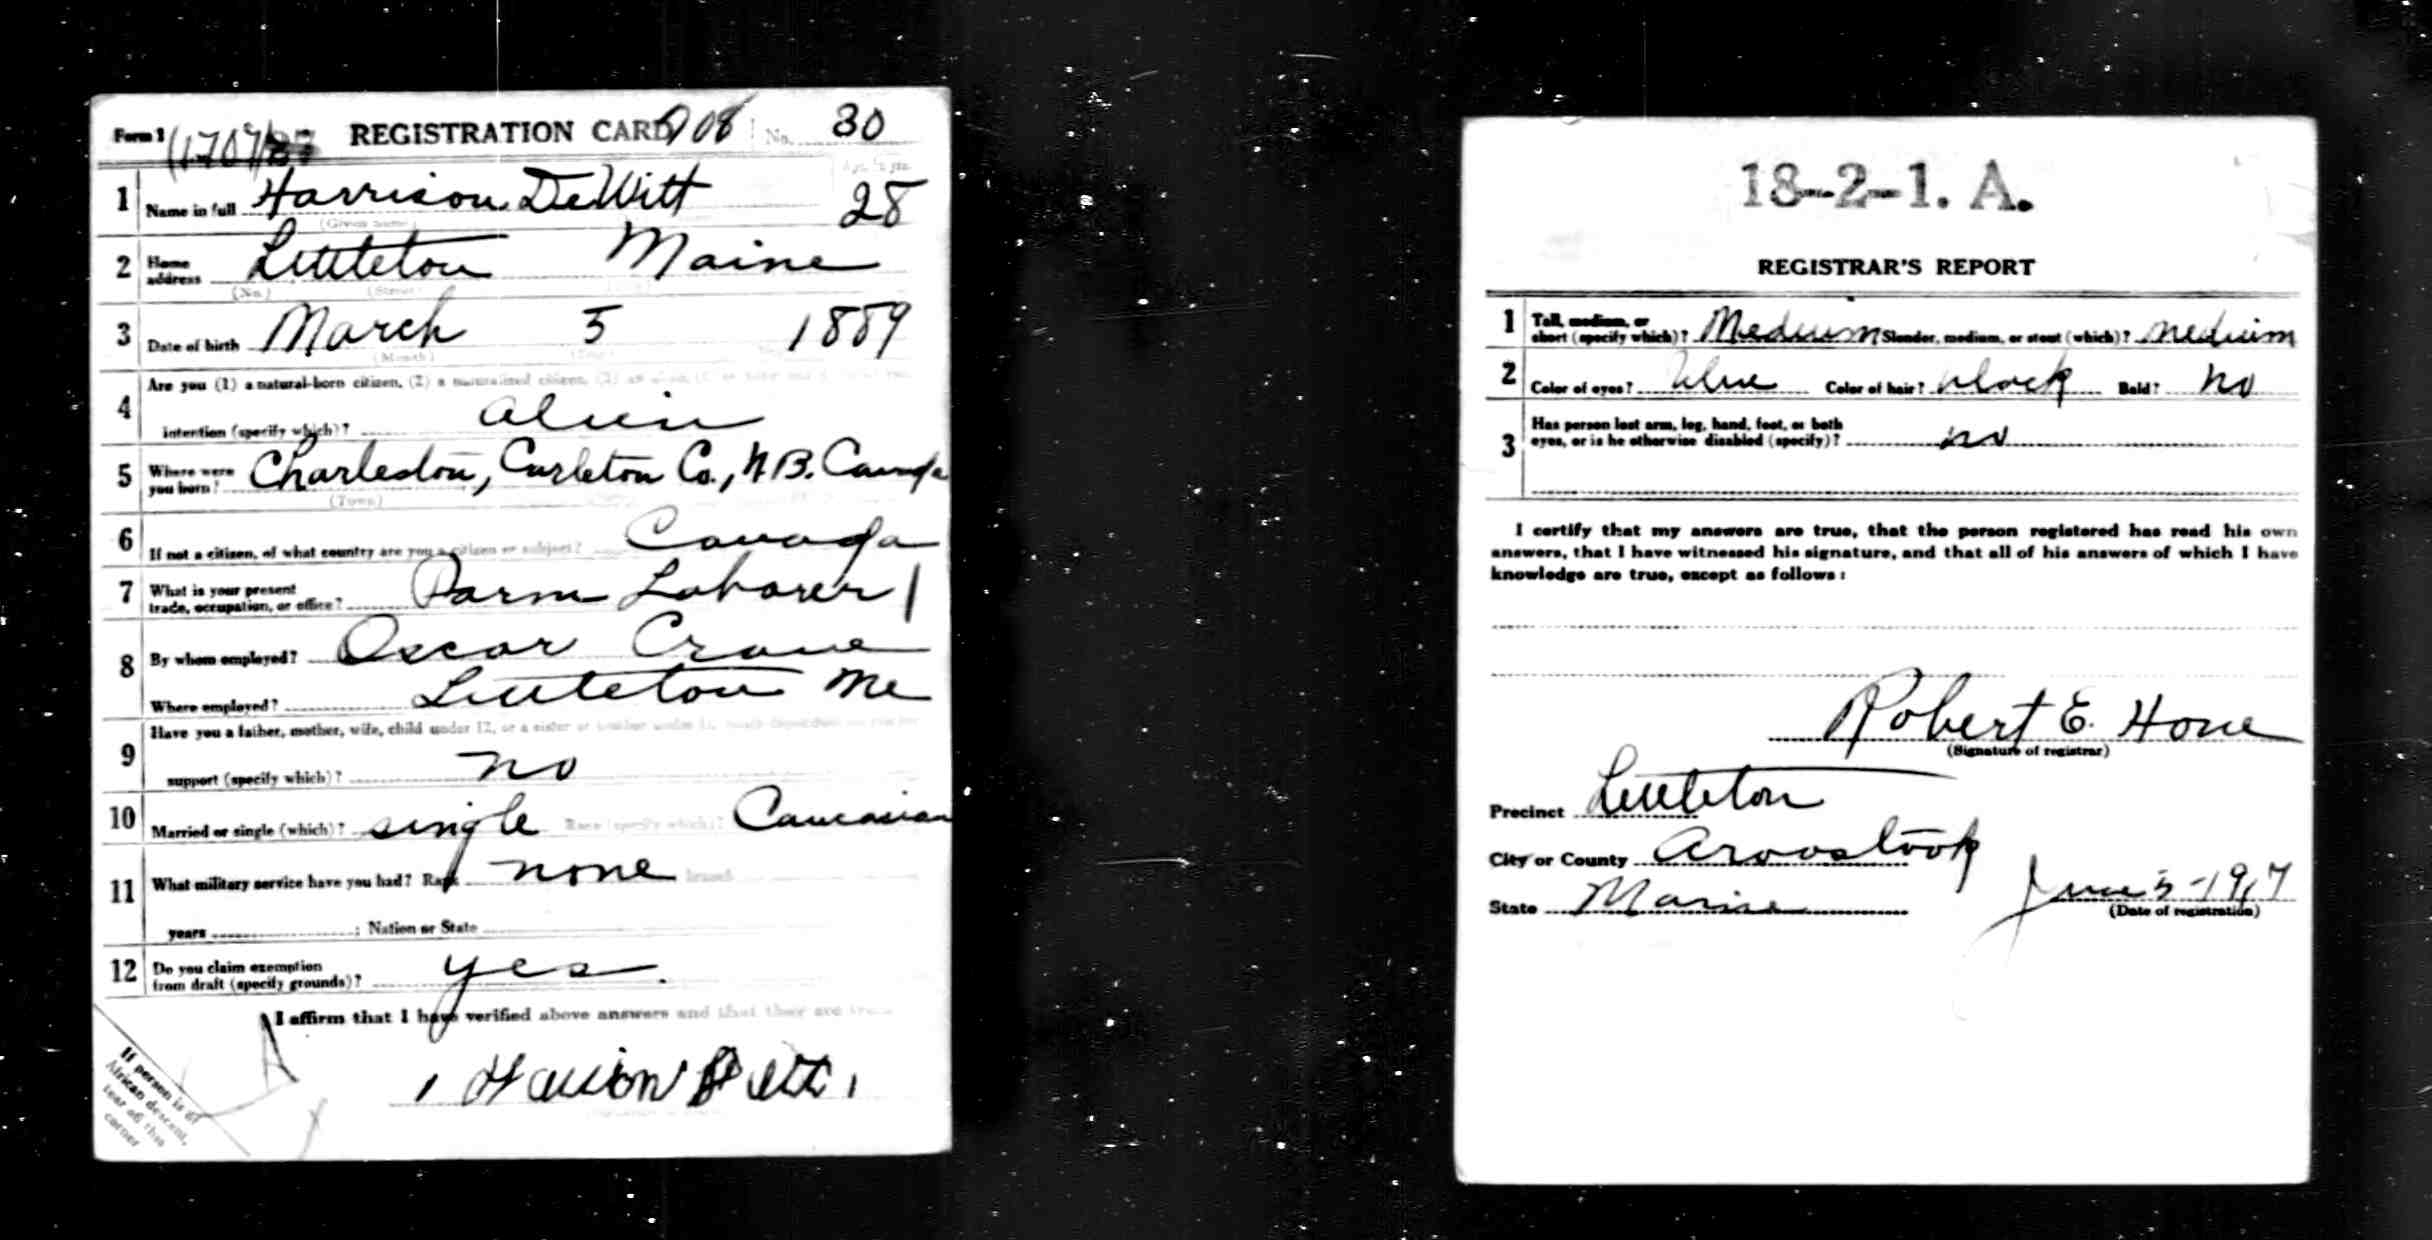 Form 1 REGISTRATION CARD 908 No. 30
1 Name in full Harrison DeWitt 28
(Given name)
2 Home address Littleton Maine
(No.) (Street)
3 Date of birth March 5 1889
(Month) (Day)
4 Are you (1) a natural-born citizen, (2) a naturalized citizen, (3) an alien,
intention (specify which)? alien
5 Where were you born? Charleston, Carleton Co., N.B. Canada
(Town)
6 If not a citizen, of what country are you a citizen or subject? Canada
7 What is your present trade, occupation, or office? Farm Laborer 1
8 By whom employed? Oscar Crane
Where employed? Littleton Me
9 Have you a father, mother, wife, child under 12, or a sister or brother under 12,
support (specify which)? no
10 Married or single (which)? single Race (specify which)? Caucasian
11 What military service have you had? Rank none branch
years ; Nation or State
12 Do you claim exemption from draft (specify grounds)? yes.
I affirm that I have verified above answers and that they are true.
Harrison DeWitt
If person is of
African descent,
tear off this
corner
18-2-1. A.
REGISTRAR'S REPORT
1 Tall, medium, or short (specify which)? Medium Slender, medium, or stout (which)? Medium
2 Color of eyes? blue Color of hair? black Bald? no
3 Has person lost arm, leg, hand, foot, or both eyes, or is he otherwise disabled (specify)? no
I certify that my answers are true, that the person registered has read his own
answers, that I have witnessed his signature, and that all of his answers of which I have
knowledge are true, except as follows:
Robert E. Hone
(Signature of registrar)
Precinct Littleton
City or County Aroostook
State Maine
June 5-1917
(Date of registration)